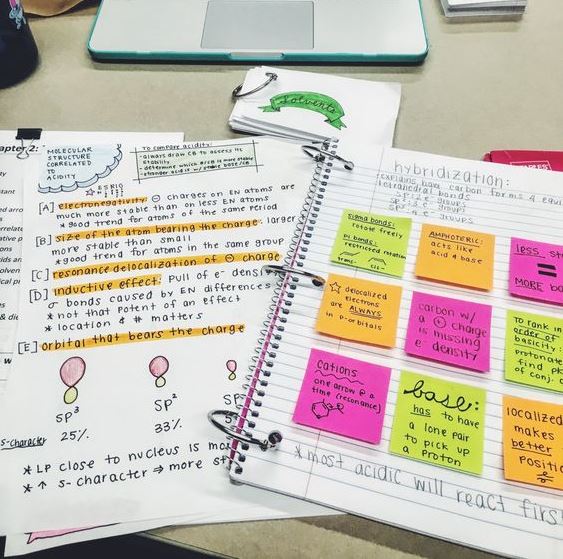 Solvents
apter 2:
MOLECULAR
STRUCTURE
CORRELATED
TO
ACIDITY
TO compare acidity:
- always draw CB to assess its
stability
- determine which is more stable
- stronger acid is w/ stable base/CB
[A] electronegativity: ⊖ charges on EN atoms are
much more stable than on less EN atoms
* good trend for atoms of the same period
[B] size of the atom bearing the charge: larger
more stable than small
* good trend for atoms in the same group
[C] resonance delocalization of ⊖ charge
[D] inductive effect: Pull of e⁻ densi
σ bonds caused by EN differences
* not that Potent of an Effect
* location & # matters
[E] orbital that bears the charge
SP³
SP²
s-character
25%
33%
* LP close to nucleus is mo
* ↑ s-character ⇒ more st
hybridization:
explains how carbon forms 4 equi
tetrahedral bonds
groups
groups
groups
sigma bonds:
rotate freely
pi bonds:
restricted rotation
trans-
cis-
AMPHOTERIC:
acts like
acid & base
less st
=
MORE ba
☆ delocalized
electrons
are ALWAYS
in p-orbitals
carbon w/
a ⊕ charge
is missing
e⁻ density
To rank in
order of
basicity:
protonate
find pk
of conj.
cations
one arrow @ a
time (resonance)
base:
has to have
a lone pair
to pick up
a Proton
localized
makes
better
positio
* most acidic will react firs